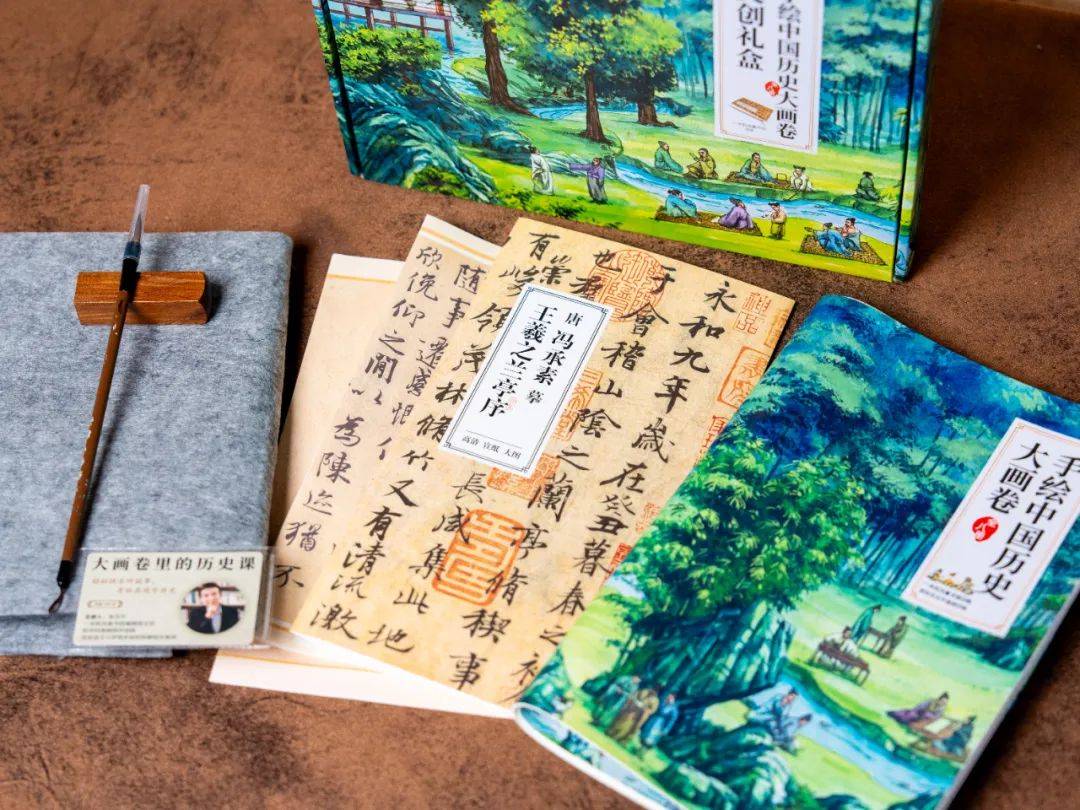 手绘中国历史大画卷
文创礼盒
永和九年歲在癸丑暮春之初
于會稽山陰之蘭亭脩禊事
也羣
長咸集此地
有崇
領茂林脩竹又有清流激
隨事遷感慨
欣俛仰之間以為陳迹猶
不
唐 冯承素 摹
王羲之兰亭序
高清 宣纸 大图
手绘中国历史
大画卷
大画卷里的历史课